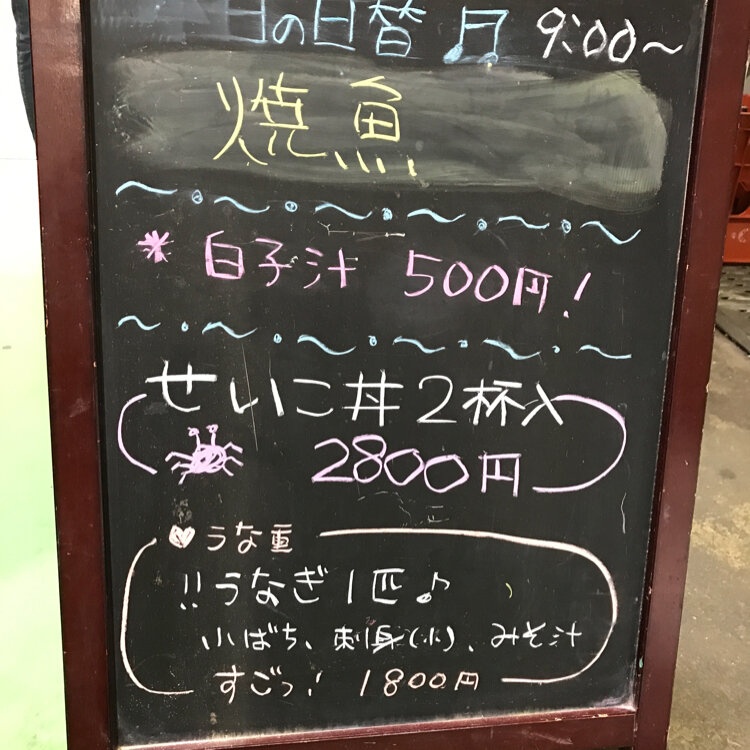 日の日替♫ 9:00〜
焼魚
* 白子汁 500円!
せいこ丼2杯入
2800円
♥うな重
!!うなぎ1匹♪
小ばち、刺身(小)、みそ汁
すごっ! 1800円